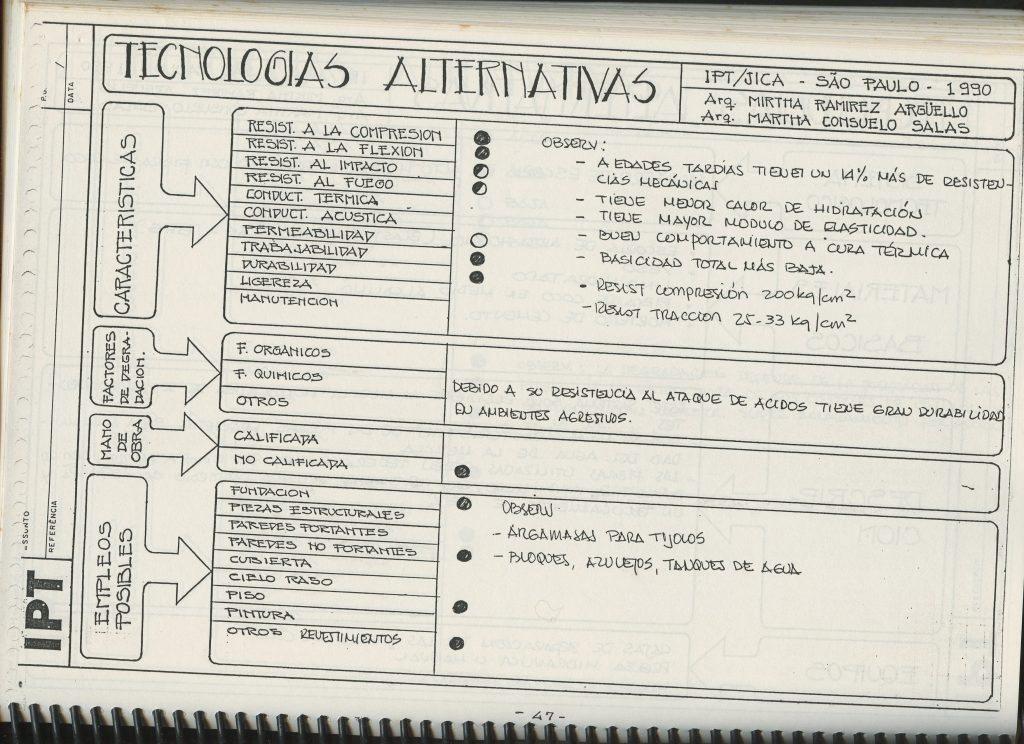 TECNOLOGIAS ALTERNATIVAS
IPT/JICA - SÃO PAULO - 1990
Arq. MIRTHA RAMIREZ ARGÜELLO
Arq. MARTHA CONSUELO SALAS
DATA /
P.G.
CARACTERISTICAS
RESIST. A LA COMPRESION
RESIST. A LA FLEXION
RESIST. AL IMPACTO
RESIST. AL FUEGO
CONDUCT. TERMICA
CONDUCT. ACUSTICA
PERMEABILIDAD
TRABAJABILIDAD
DURABILIDAD
LIGEREZA
MANUTENCION
OBSERV:
- A EDADES TARDÍAS TIENEN UN 14% MÁS DE RESISTEN-
CIAS MECÁNICAS
- TIENE MENOR CALOR DE HIDRATACIÓN
- TIENE MAYOR MODULO DE ELASTICIDAD.
- BUEN COMPORTAMIENTO A CURA TÉRMICA
- BASICIDAD TOTAL MÁS BAJA.
- RESIST COMPRESIÓN 200 kg/cm²
- RESIST TRACCION 25-33 kg/cm²
FACTORES
DE DEGRA-
DACION.
F. ORGANICOS
F. QUIMICOS
OTROS
DEBIDO A SU RESISTENCIA AL ATAQUE DE ACIDOS TIENE GRAN DURABILIDAD
EN AMBIENTES AGRESIVOS.
MANO
DE
OBRA
CALIFICADA
NO CALIFICADA
EMPLEOS
POSIBLES
FUNDACION
PIEZAS ESTRUCTURALES
PAREDES PORTANTES
PAREDES NO PORTANTES
CUBIERTA
CIELO RASO
PISO
PINTURA
OTROS REVESTIMIENTOS
OBSERV.
- ARGAMASAS PARA TIJOLOS
- BLOQUES, AZULEJOS, TANQUES DE AGUA
REFERÊNCIA
IPT
- 47 -